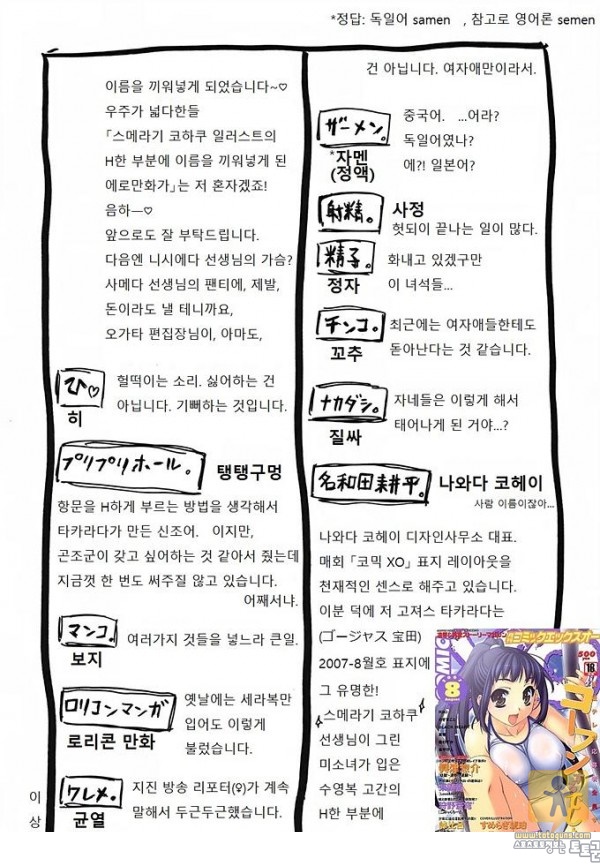 *정답: 독일어 samen , 참고로 영어론 semen
건 아닙니다. 여자애만이라서.
ザーメン。
*자멘
(정액)
중국어. ...어라?
독일어였나?
에?! 일본어?
射精。
사정
헛되이 끝나는 일이 많다.
精子。
정자
화내고 있겠구만
이 녀석들...
チンコ。
꼬추
최근에는 여자애들한테도
돋아난다는 것 같습니다.
ナカダシ。
질싸
자네들은 이렇게 해서
태어나게 된 거야...?
名和田耕平。
나와다 코헤이
사람 이름이잖아...
나와다 코헤이 디자인사무소 대표.
매회 「코믹 XO」 표지 레이아웃을
천재적인 센스로 해주고 있습니다.
이분 덕에 저 고져스 타카라다는
(ゴージャス 宝田)
2007-8월호 표지에
그 유명한!
"스메라기 코하쿠"
선생님이 그린
미소녀가 입은
수영복 고간의
H한 부분에
이름을 끼워넣게 되었습니다~♡
우주가 넓다한들
「스메라기 코하쿠 일러스트의
H한 부분에 이름을 끼워넣게 된
에로만화가」는 저 혼자겠죠!
음하—♡
앞으로도 잘 부탁드립니다.
다음엔 니시에다 선생님의 가슴?
사메다 선생님의 팬티에, 제발,
돈이라도 낼 테니까요,
오가타 편집장님이, 아마도,
ひ♡
히
헐떡이는 소리. 싫어하는 건
아닙니다. 기뻐하는 것입니다.
プリプリホール。
탱탱구멍
항문을 H하게 부르는 방법을 생각해서
타카라다가 만든 신조어. 이지만,
곤조군이 갖고 싶어하는 것 같아서 줬는데
지금껏 한 번도 써주질 않고 있습니다.
어째서냐.
マンコ。
보지
여러가지 것들을 넣느라 큰일.
ロリコンマンガ
로리콘 만화
옛날에는 세라복만
입어도 이렇게
불렀습니다.
ワレメ。
균열
지진 방송 리포터(♀)가 계속
말해서 두근두근했습니다.
이
상
COMIC
8
500
18
すめらぎ琥珀
www.totoguns.com